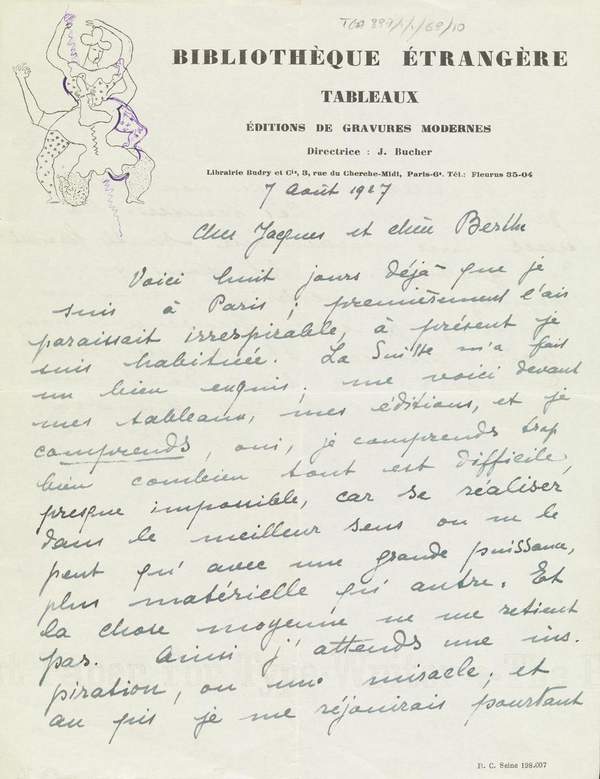 TGA 897/1/1/69/10
BIBLIOTHÈQUE ÉTRANGÈRE
TABLEAUX
ÉDITIONS DE GRAVURES MODERNES
Directrice : J. Bucher
Librairie Budry et Cie, 3, rue du Cherche-Midi, Paris-6e. Tél.: Fleurus 35-04
7 Août 1927
Cher Jacques et chère Berthe
Voici huit jours déjà que je
suis à Paris ; premièrement l'air
paraissait irrespirable, à présent je
suis habituée. La Suisse m'a fait
un bien exquis ; me voici devant
mes tableaux, mes éditions, et je
comprends, oui, je comprends trop
bien combien tout est difficile,
presque impossible, car se réaliser
dans le meilleur sens on ne le
peut qu'avec une grande puissance,
plus matérielle qu'autre. Et
la chose moyenne ne me retient
pas. Ainsi j'attends une ins-
piration, ou un miracle, et
au pis je me réjouirais pourtant
R. C. Seine 198.007